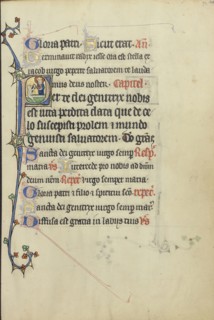 Gloria patri. Sicut erat. an̄
Germinavit radix iesse orta est stella ex
iacob virgo peperit salvatorem te lauda
mus deus noster. Capitel'
Te dei genitrix nobis
est vita perdita data que de ce
lo suscepisti prolem & mundo
genuisti salvatorem. Deo gr̄as
Sancta dei genitrix virgo semp Resp̄.
maria. V̄s Intercede pro nobis ad dn̄m
deum nrm̄ Repet' virgo semper maria.
Gloria patri & filio & spiritui sc̄o. repet'.
Sancta dei genitrix virgo semp mar'.
Diffusa est gratia in labiis tuis V̄s